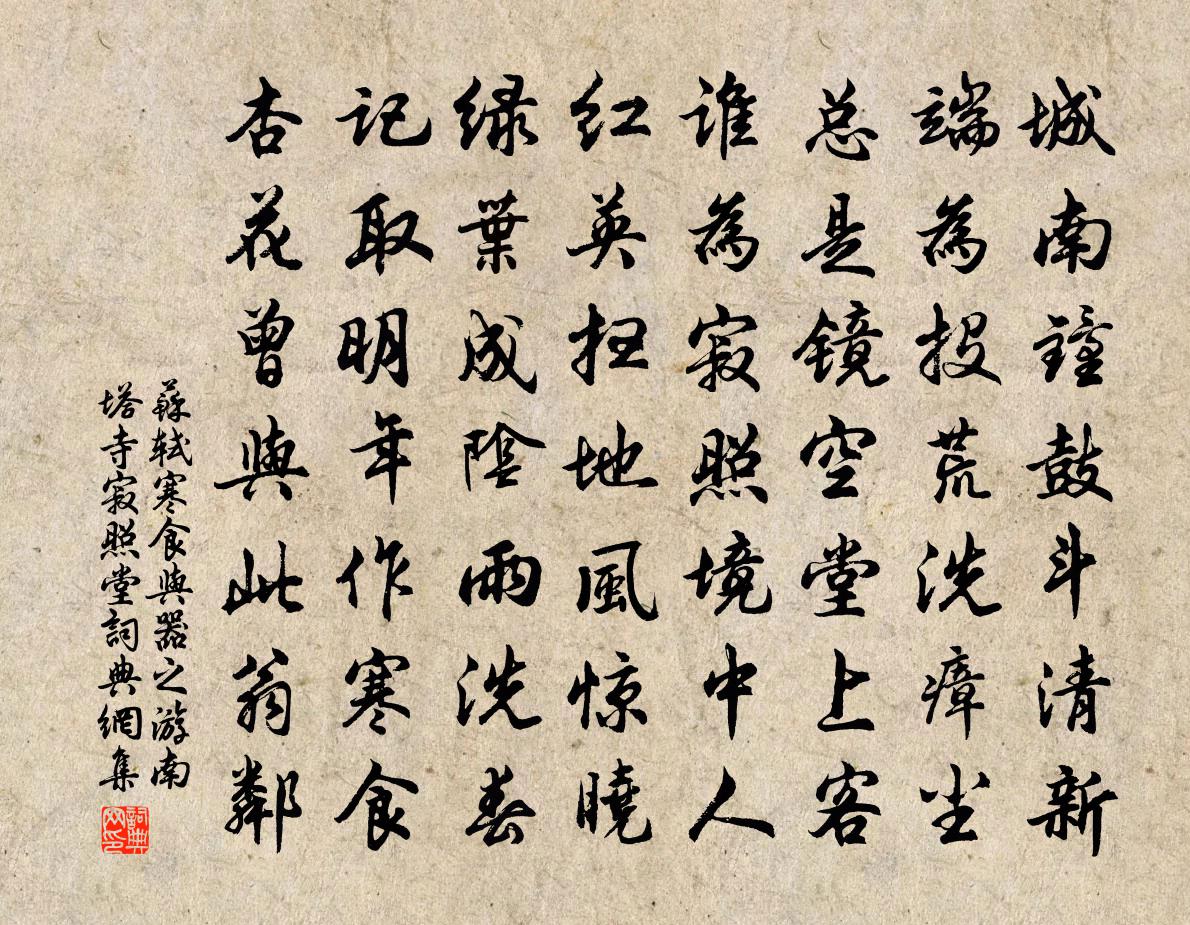 城南鐘鼓斗清新
端為投荒洗瘴尘
总是镜空堂上客
谁為寂照境中人
红英扫地風惊曉
绿葉成陰雨洗春
记取明年作寒食
杏花曾與此翁鄰
蘇轼寒食與器之游南
塔寺寂照堂詞典網集
詞典网印